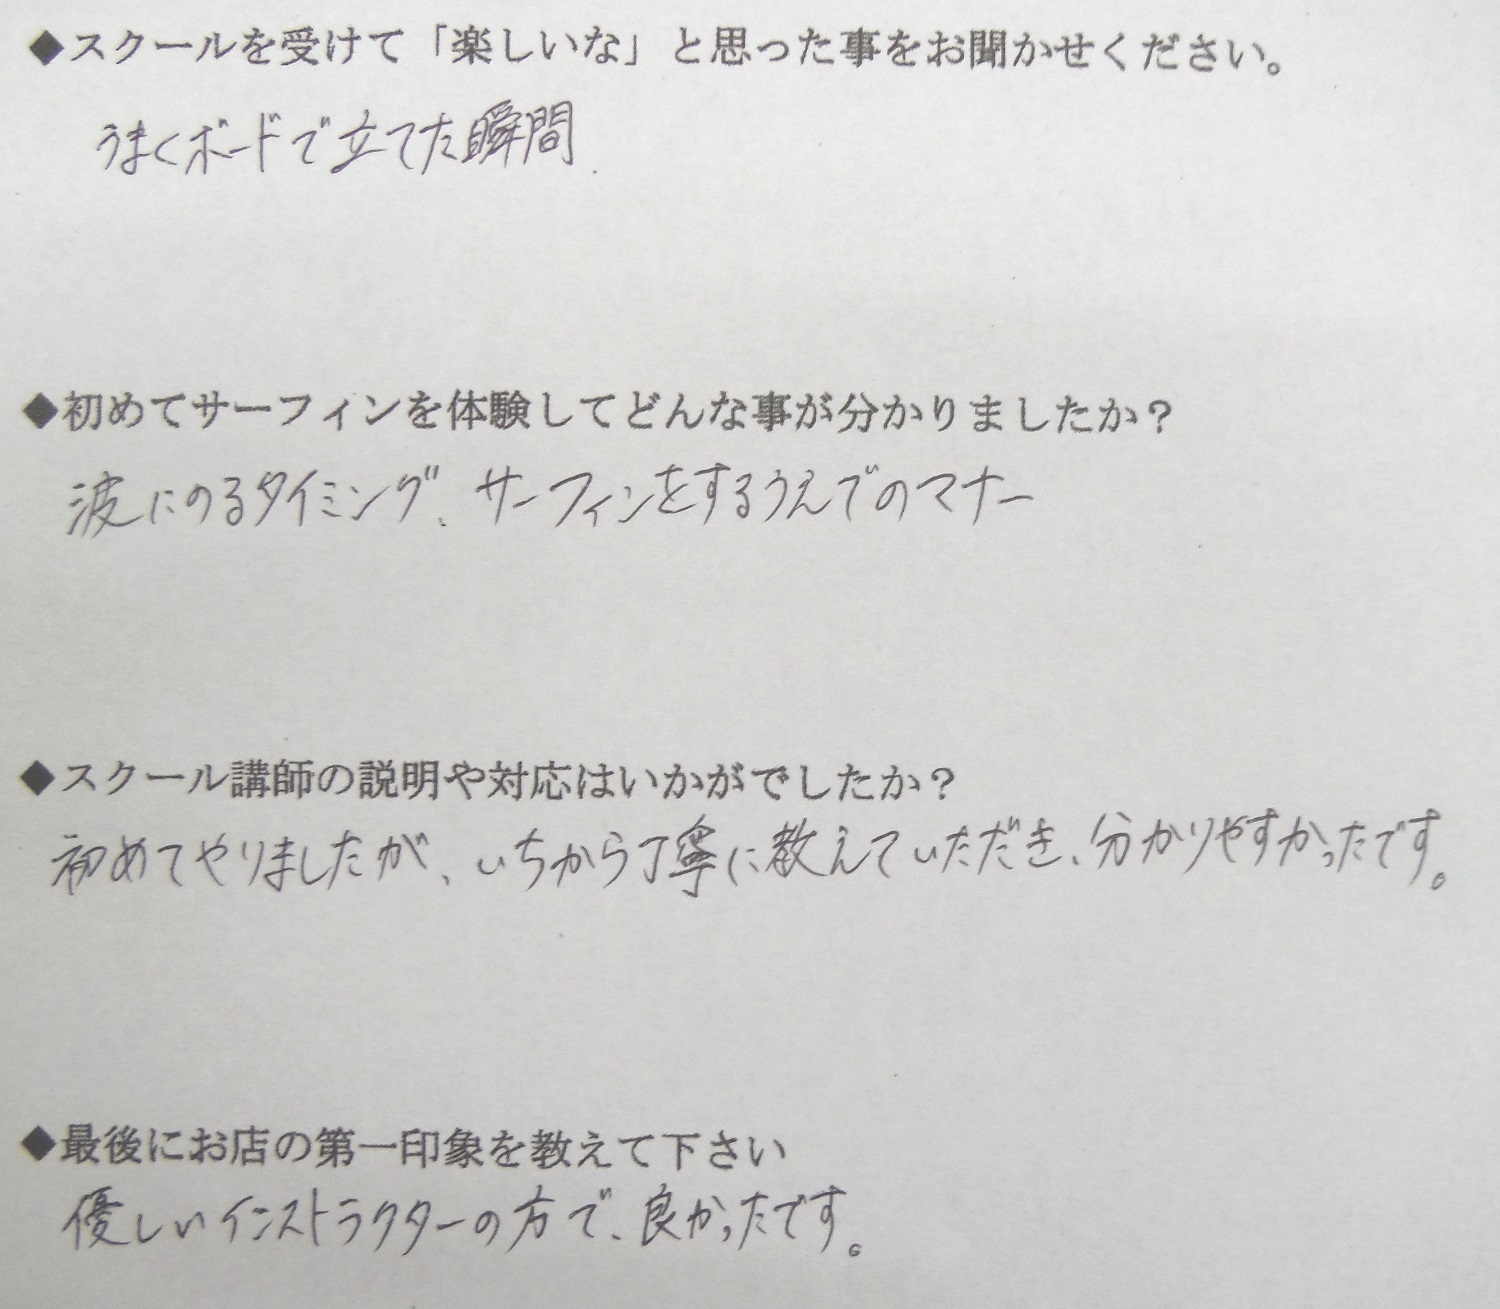 ◆スクールを受けて「楽しいな」と思った事をお聞かせください。
うまくボードで立てた瞬間.
◆初めてサーフィンを体験してどんな事が分かりましたか？
波にのるタイミング、サーフィンをするうえでのマナー
◆スクール講師の説明や対応はいかがでしたか？
初めてやりましたが、いちから丁寧に教えていただき、分かりやすかったです。
◆最後にお店の第一印象を教えて下さい
優しいインストラクターの方で、良かったです。